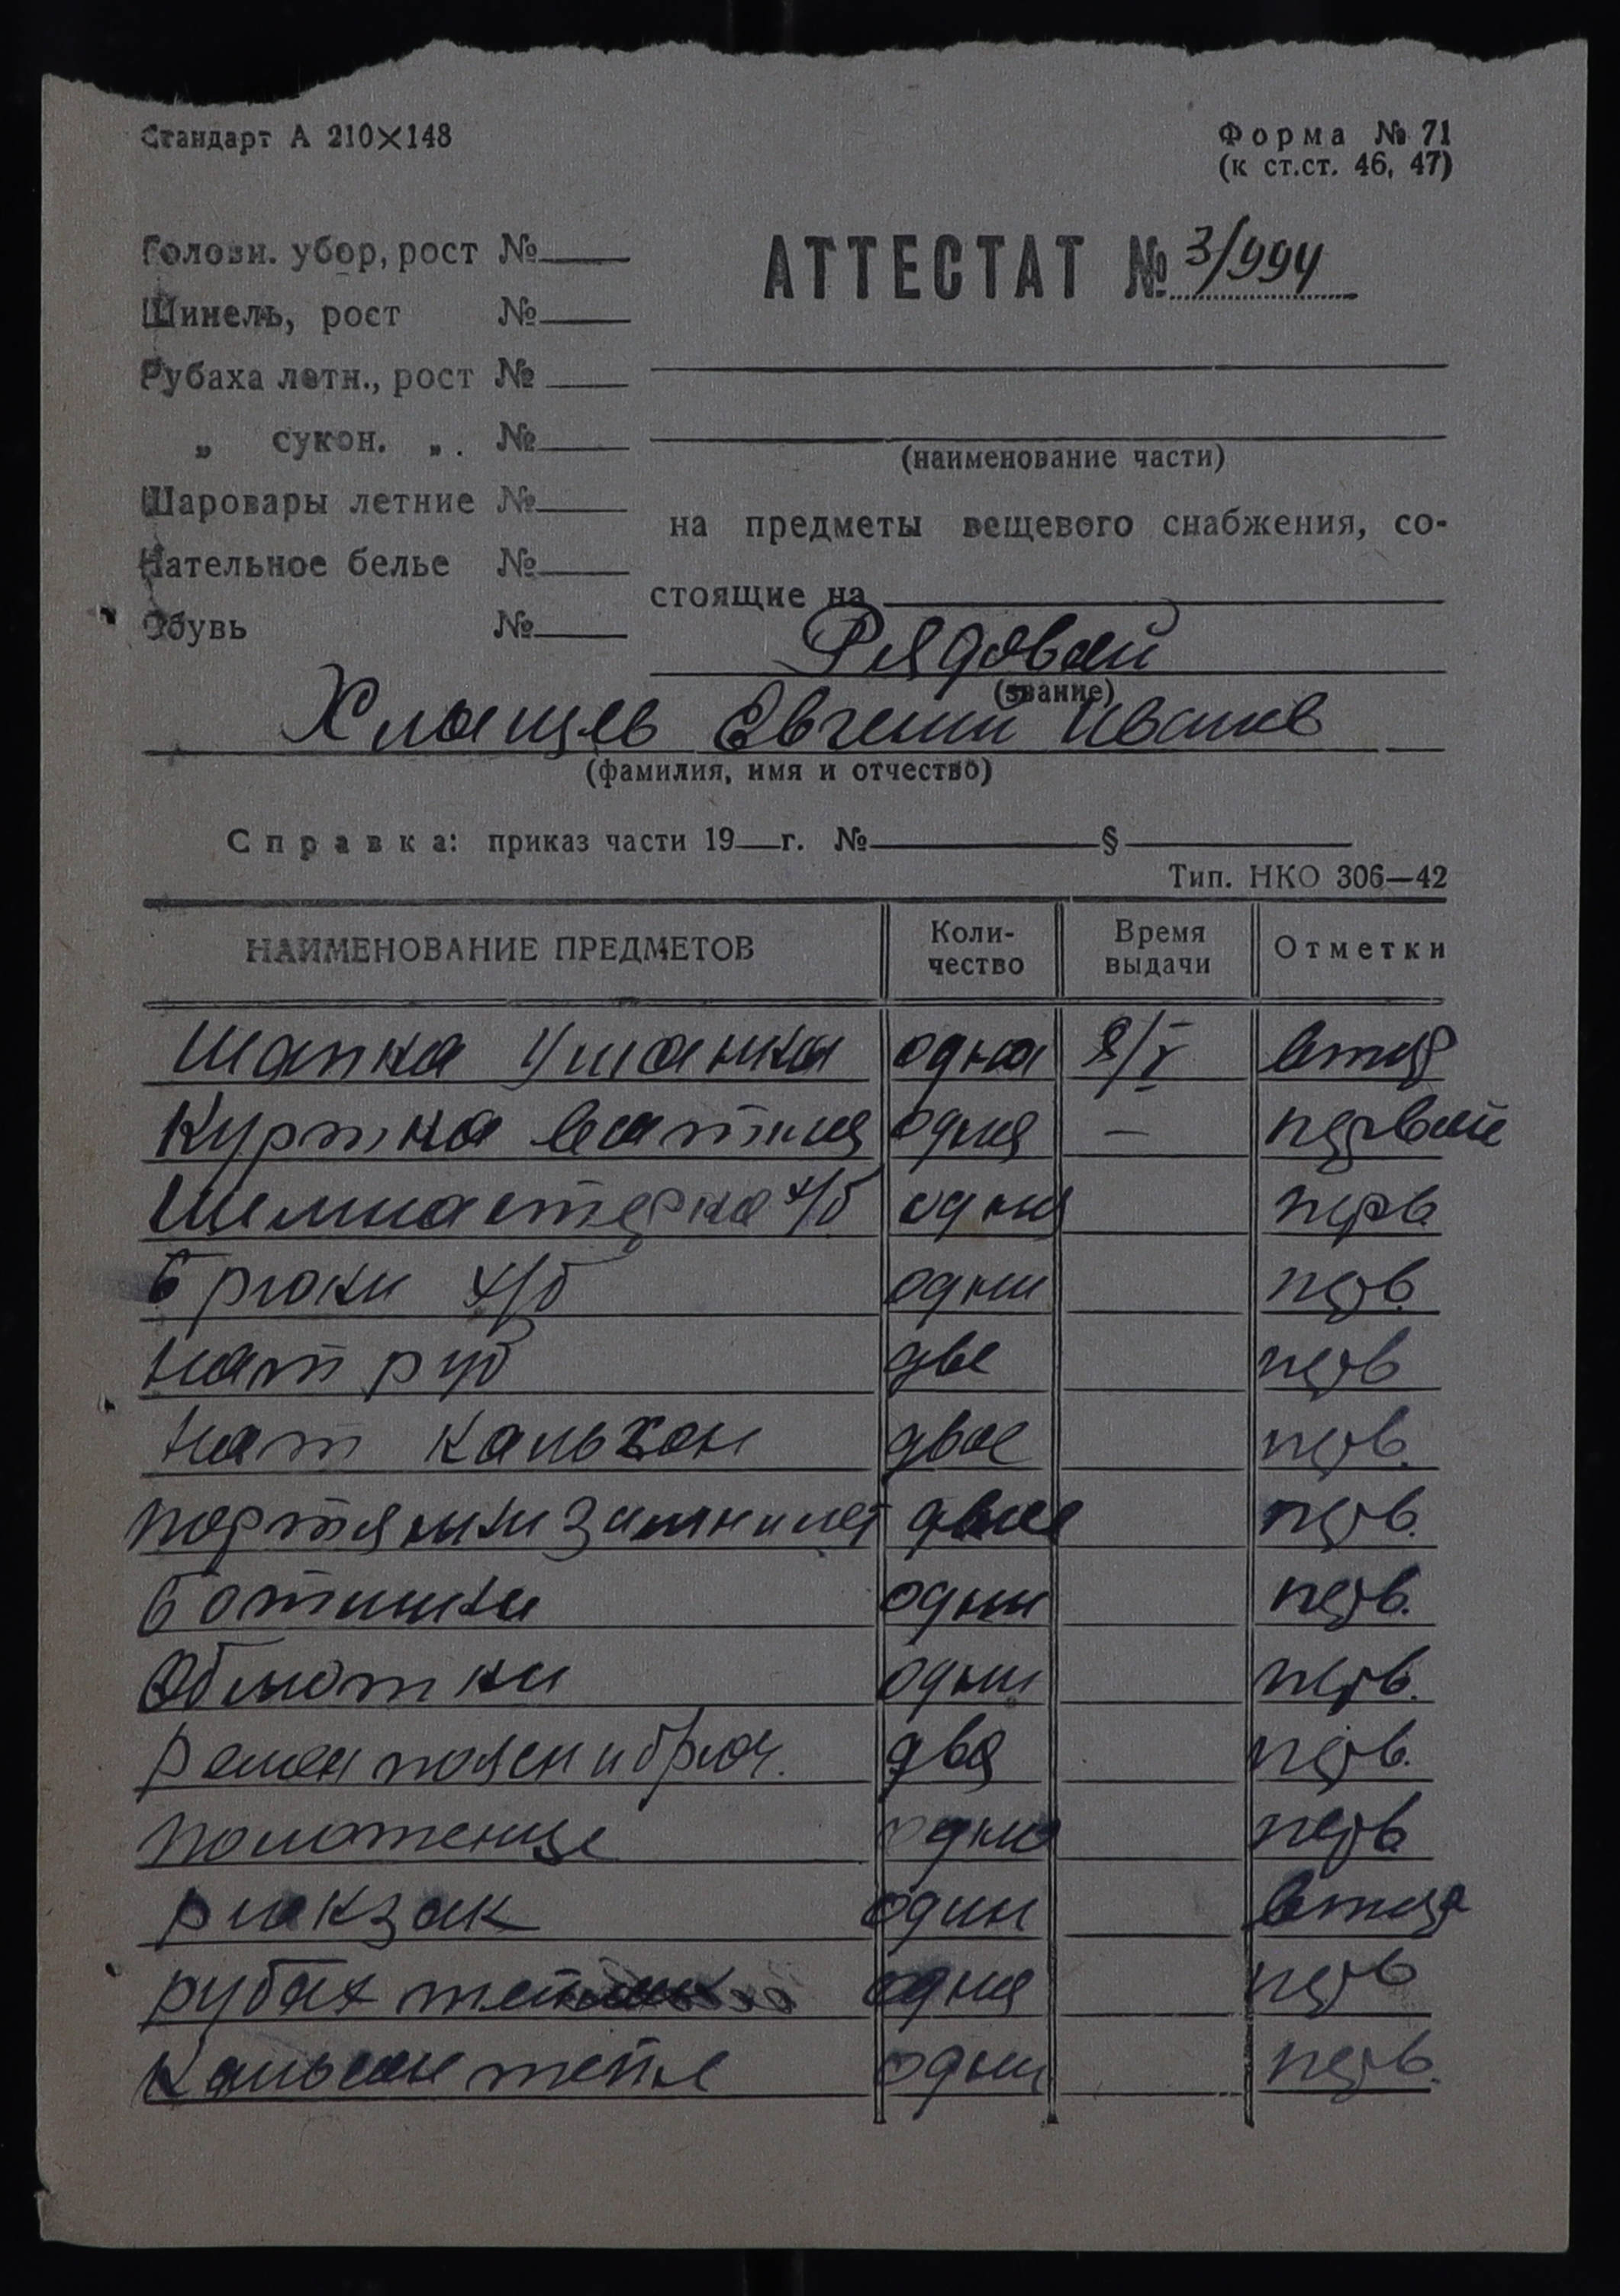 Стандарт А 210×148
Форма № 71
(к ст.ст. 46, 47)
Головн. убор, рост №
Шинель, рост №
Рубаха летн., рост №
„ сукон. „ . №
Шаровары летние №
Нательное белье №
Обувь №
АТТЕСТАТ № 3/994
(наименование части)
на предметы вещевого снабжения, со-
стоящие на
Рядовой
(звание)
Евгений Иванов
(фамилия, имя и отчество)
Справка: приказ части 19 г. № §
Тип. НКО 306—42
НАИМЕНОВАНИЕ ПРЕДМЕТОВ Коли-чество Время выдачи Отметки
Шапка Ушанка одна втор
Куртка ватная одна — первой
х/б одна перв.
Брюки х/б одни перв.
нат руб две перв
нат кальсон двое перв.
портянки зимн и лет двое перв.
ботинки одни перв.
Обмотки одни перв.
ремен поясн и брюч. два перв.
полотенце одно перв
рюкзак один втор
рубах тепл одна перв
Кальсон тепл одни перв.